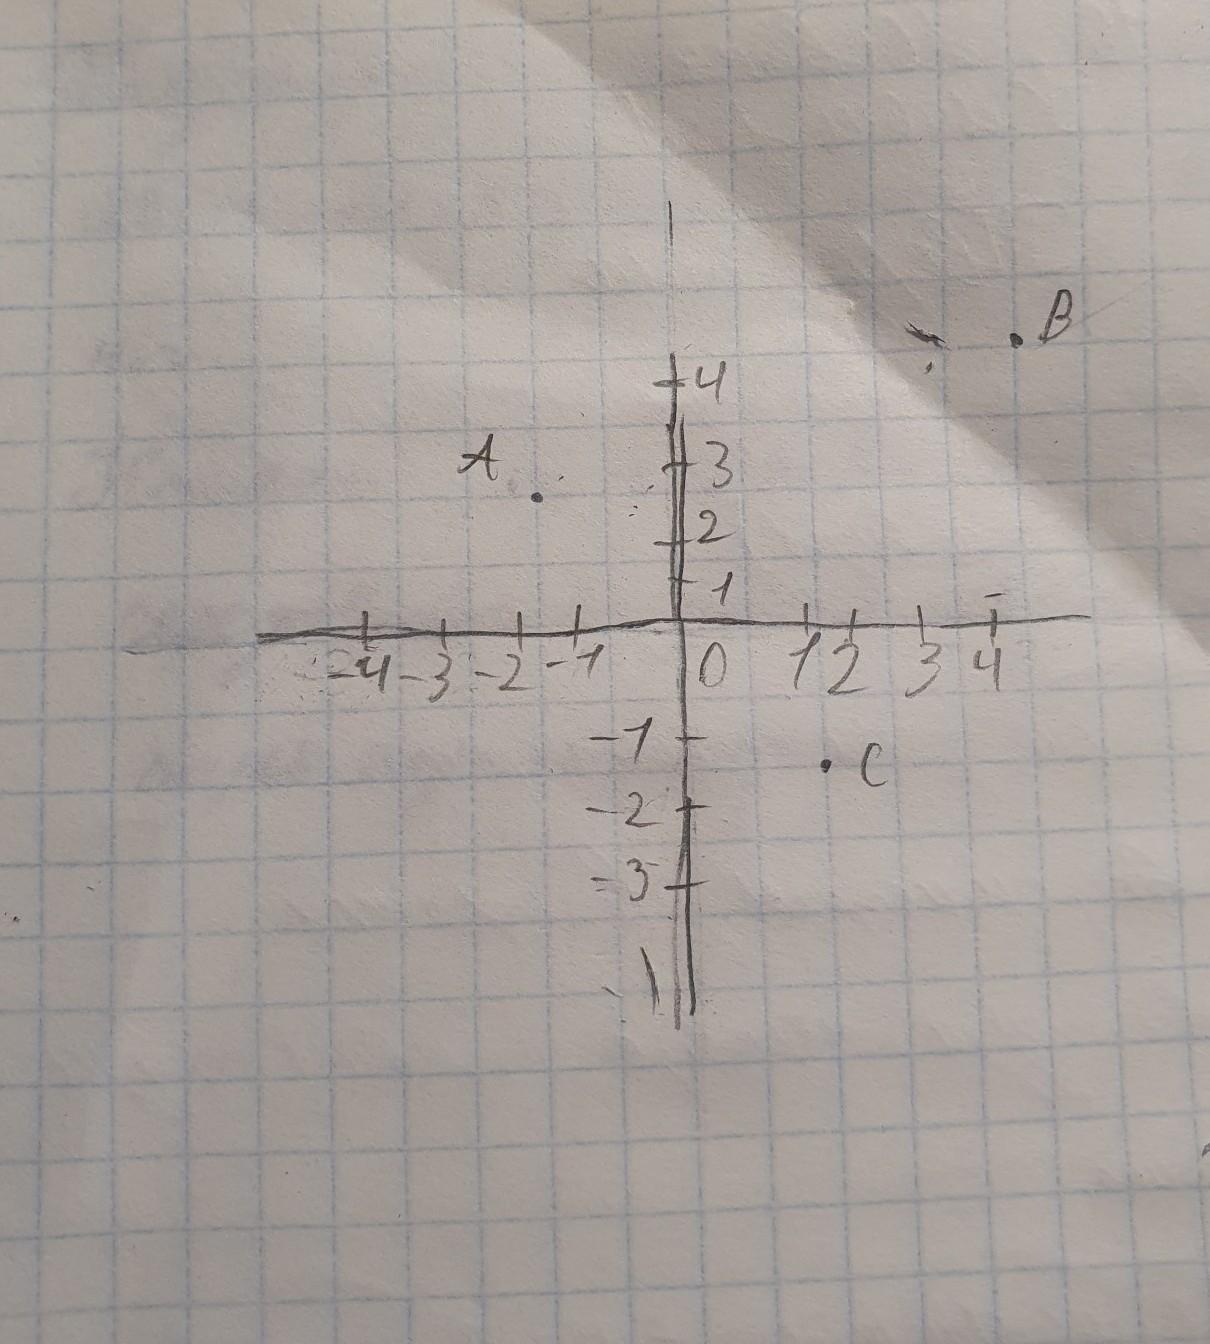 B
4
A
3
2
1
-4 -3 -2 -1 0 1 2 3 4
-1
C
-2
-3